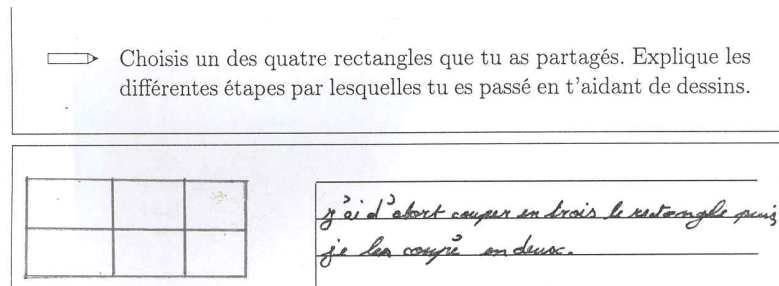 Choisis un des quatre rectangles que tu as partagés. Explique les
différentes étapes par lesquelles tu es passé en t'aidant de dessins.
j'ai d'abort couper en trois le rectangle puis
je les coupé en deux.